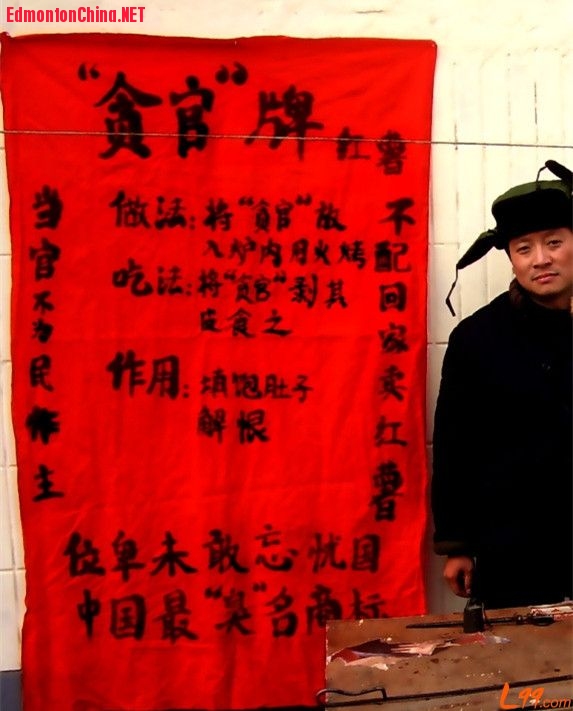 EdmontonChina.NET
“贪官”牌红薯
当官不为民作主
做法:将“贪官”放
入炉内用火烤
吃法:将“贪官”剥其
皮食之
作用:填饱肚子
解恨
不配回家卖红薯
位卑未敢忘忧国
中国最“臭”名商标
L99.com